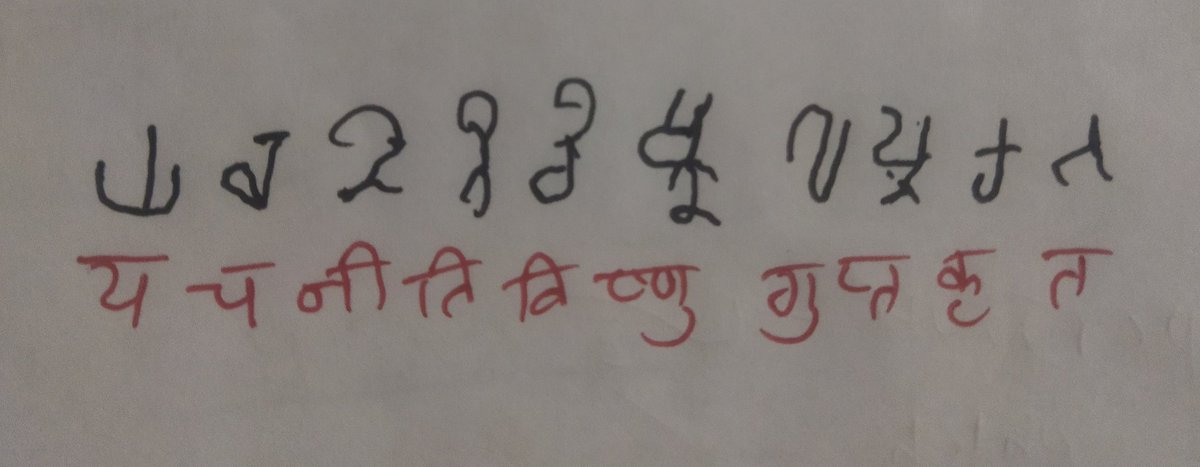 𑀬 𑀘 𑀦𑀻 𑀢𑀺 𑀯𑀺 𑀱𑁆𑀡𑀼 𑀕𑀼 𑀧𑁆𑀢 𑀓𑀾 𑀢
य च नी ति वि ष्णु गु प्त कृ त